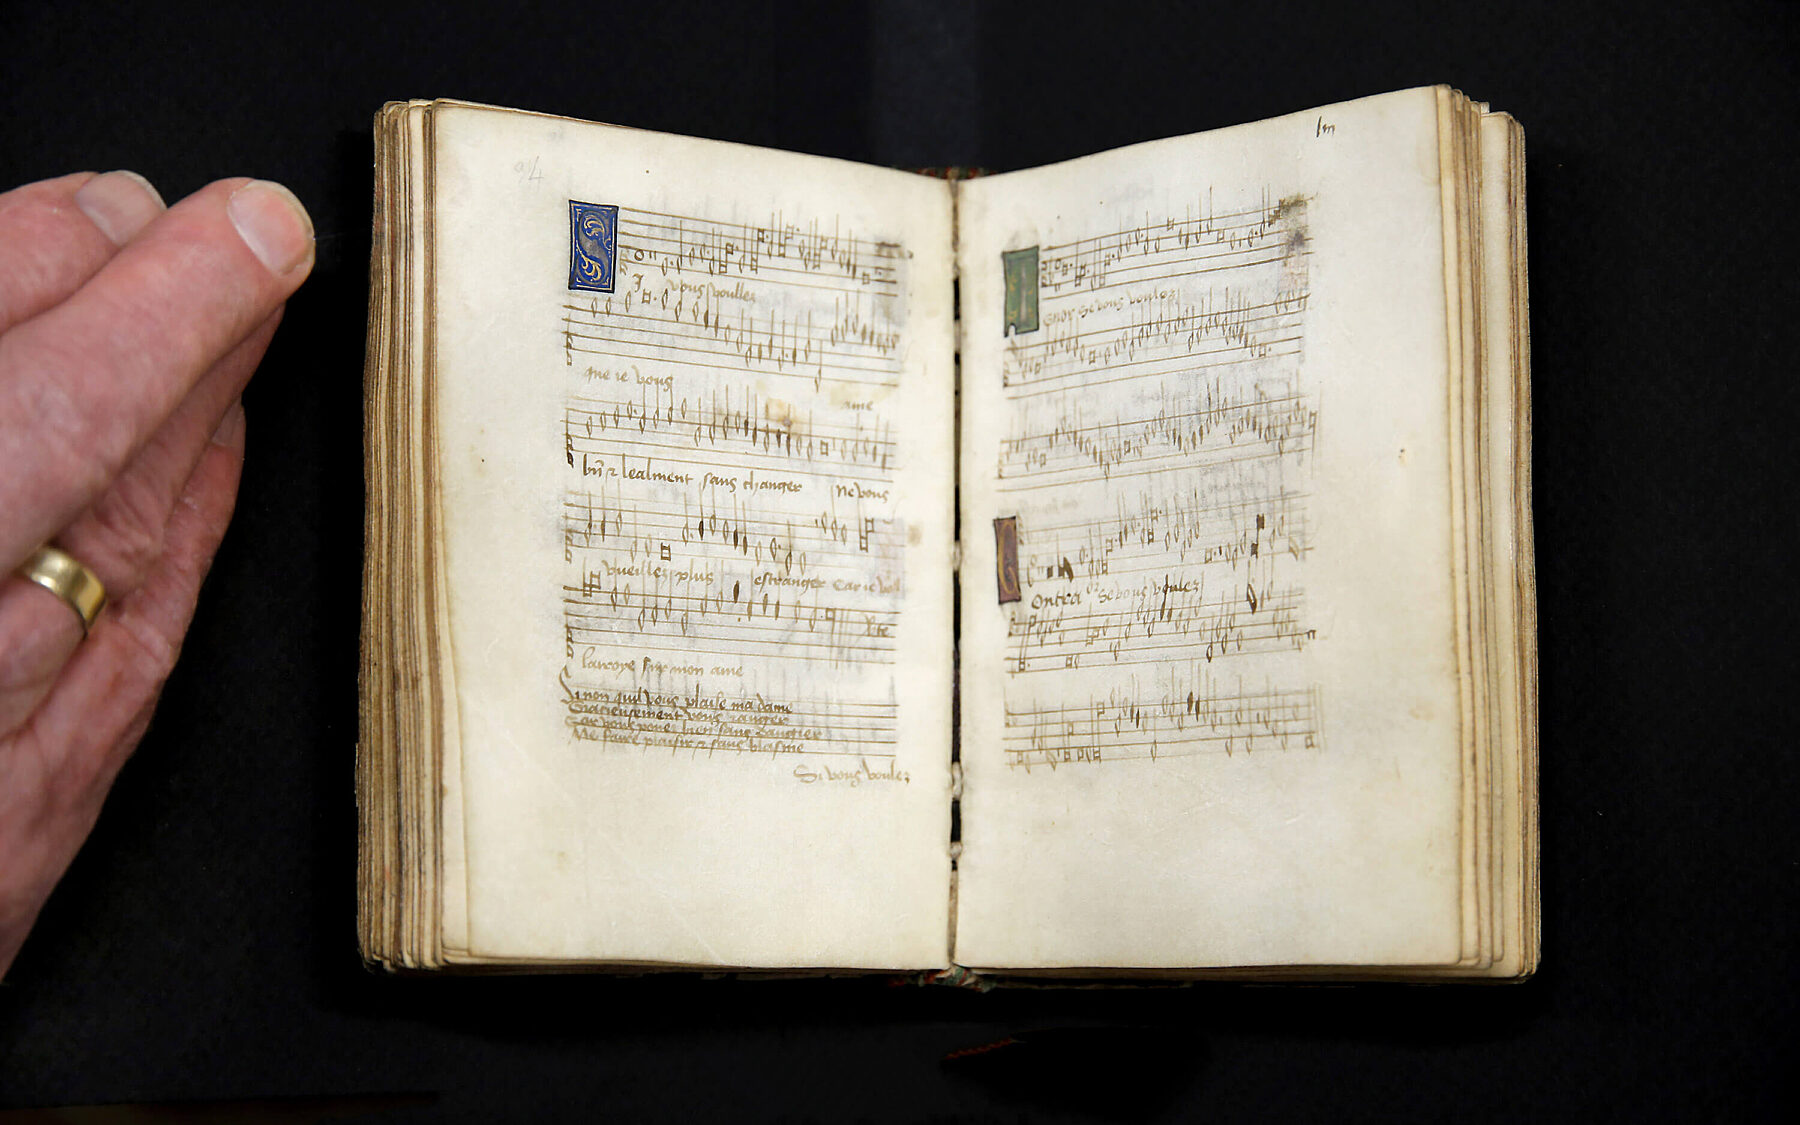 94
SI vous voullez
que ie vous
ame
bñ & lealment sans changer Ne vous
vueillez plus estranger Car ie vo
lauroye sur mon ame
Sinon quil vous plaise ma dame
Gracieusement vous ranger
Car vous pouez bien sans dangier
Me faire plaisir & sans blasme
Si vous voulez
Tenor Se vous voulez
Contra Se vous voulez